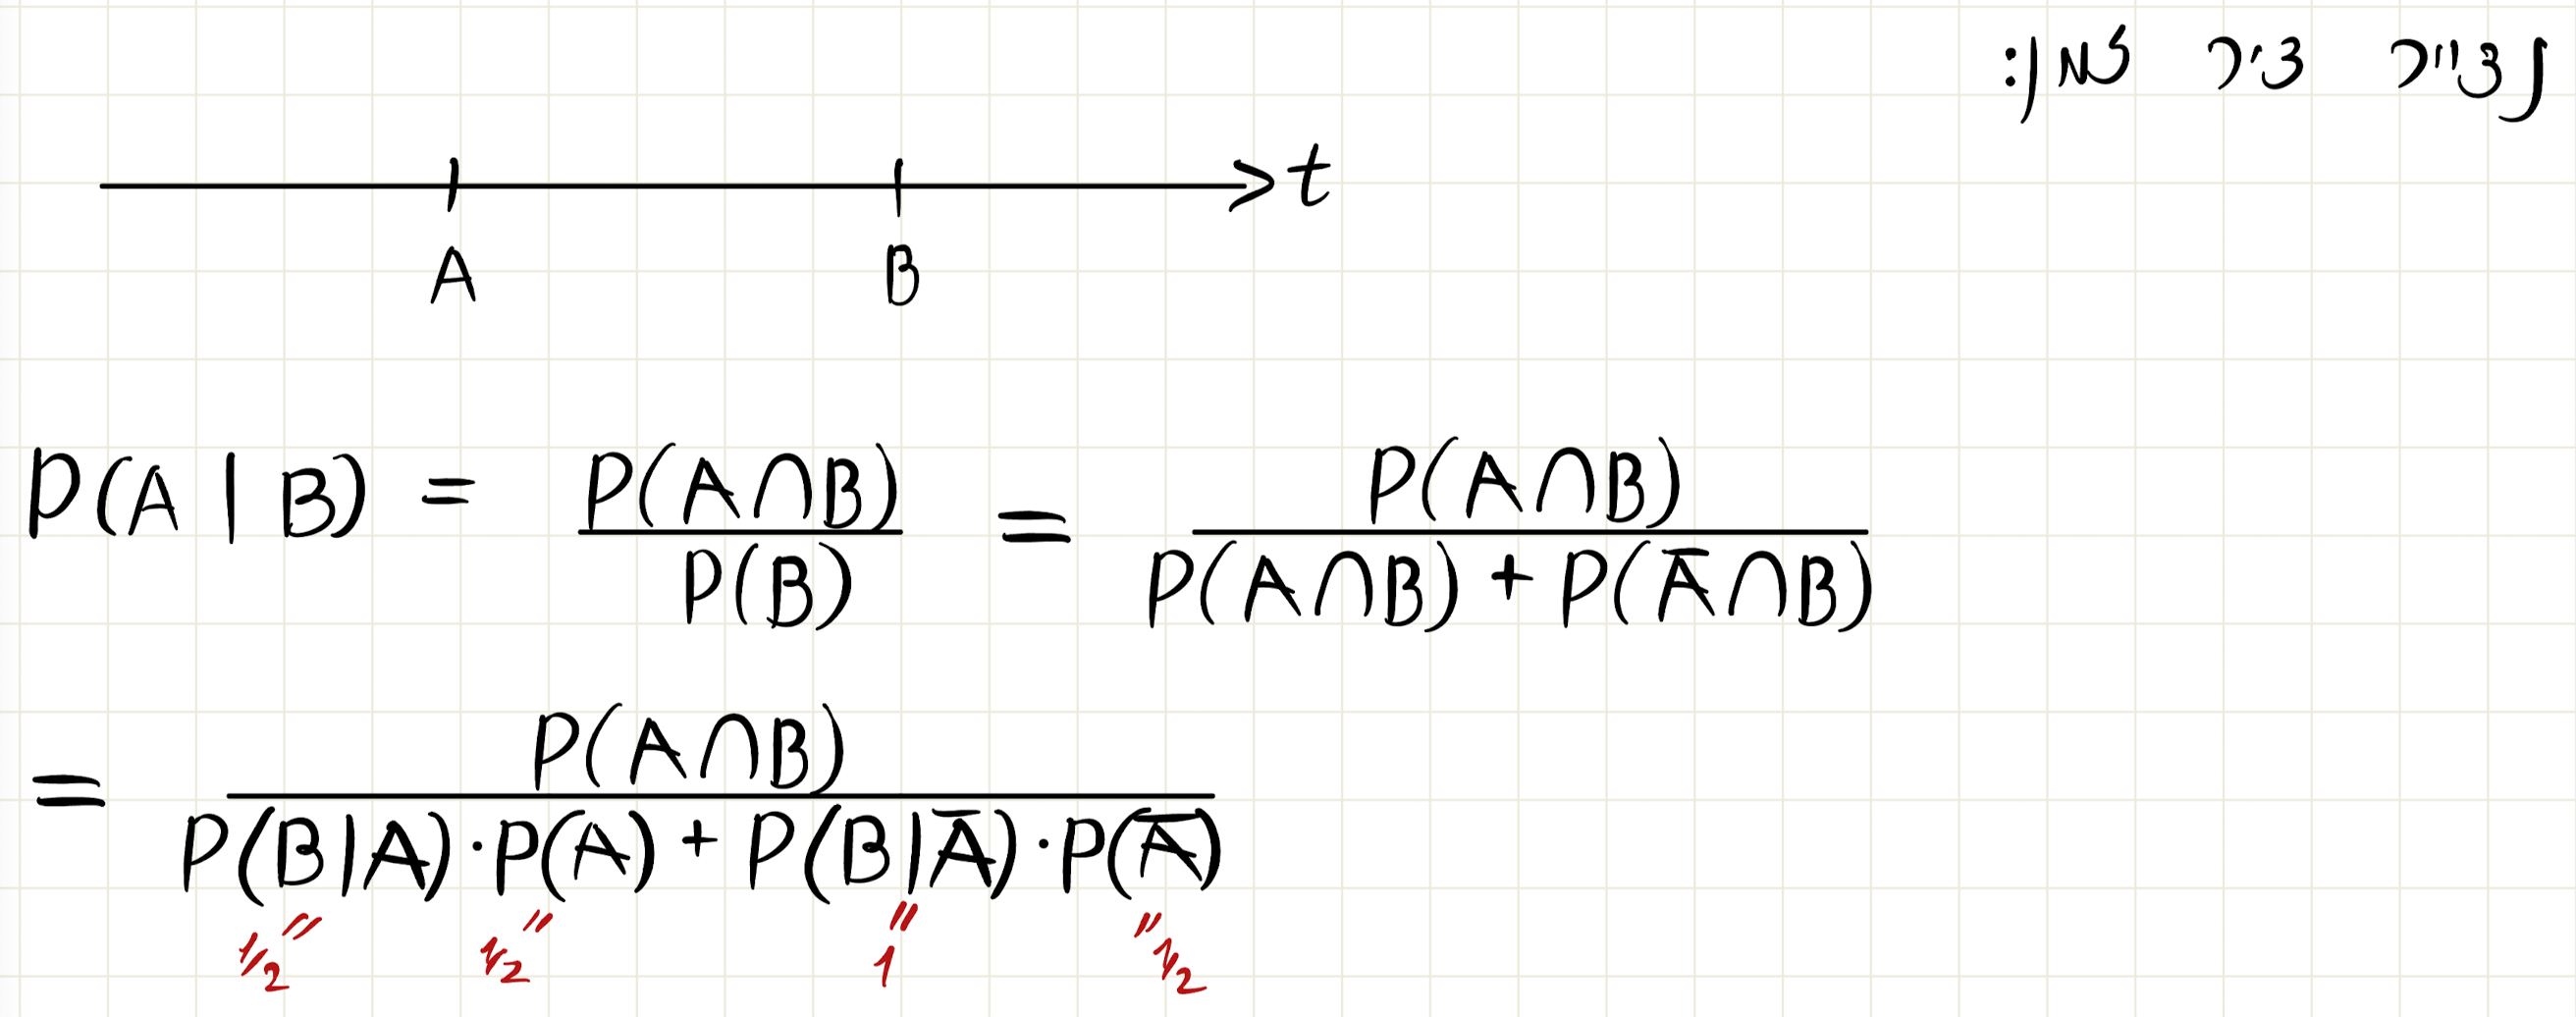 נצייר ציר זמן:
t
A B
P(A | B) = P(A∩B) / P(B) = P(A∩B) / P(A∩B) + P(Ā∩B)
= P(A∩B) / P(B|A)·P(A) + P(B|Ā)·P(Ā)
1/2 " 1/2 " " 1 " 1/2